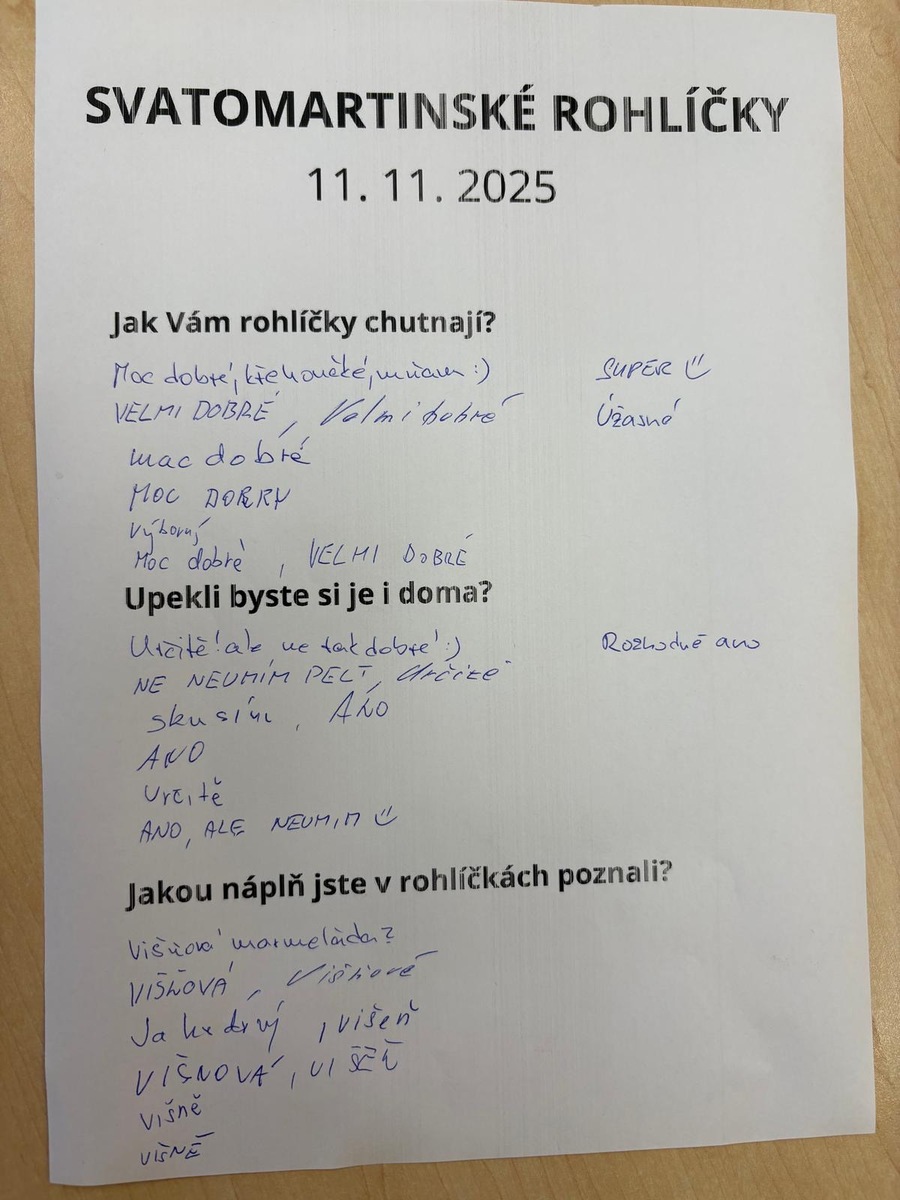 SVATOMARTINSKÉ ROHLÍČKY
11. 11. 2025
Jak Vám rohlíčky chutnají?
Moc dobré, křehoučké, mňam :) SUPER
VELMI DOBRÉ, Velmi dobré Úžasné
mac dobré
MOC DOBRY
Výborný
Moc dobré, VELMI DOBRÉ
Upekli byste si je i doma?
Určitě! ale ne tak dobré! :) Rozhodně ano
NE NEUMÍM PÉCT, Určitě
skusím, ÁNO
ANO
Určitě
ANO, ALE NEUMIM
Jakou náplň jste v rohlíčkách poznali?
Višňová marmeláda?
VIŠŇOVÁ, Višňové
, višeň
VIŠNOVÁ, VIŠEŇ
višně
VIŠNĚ